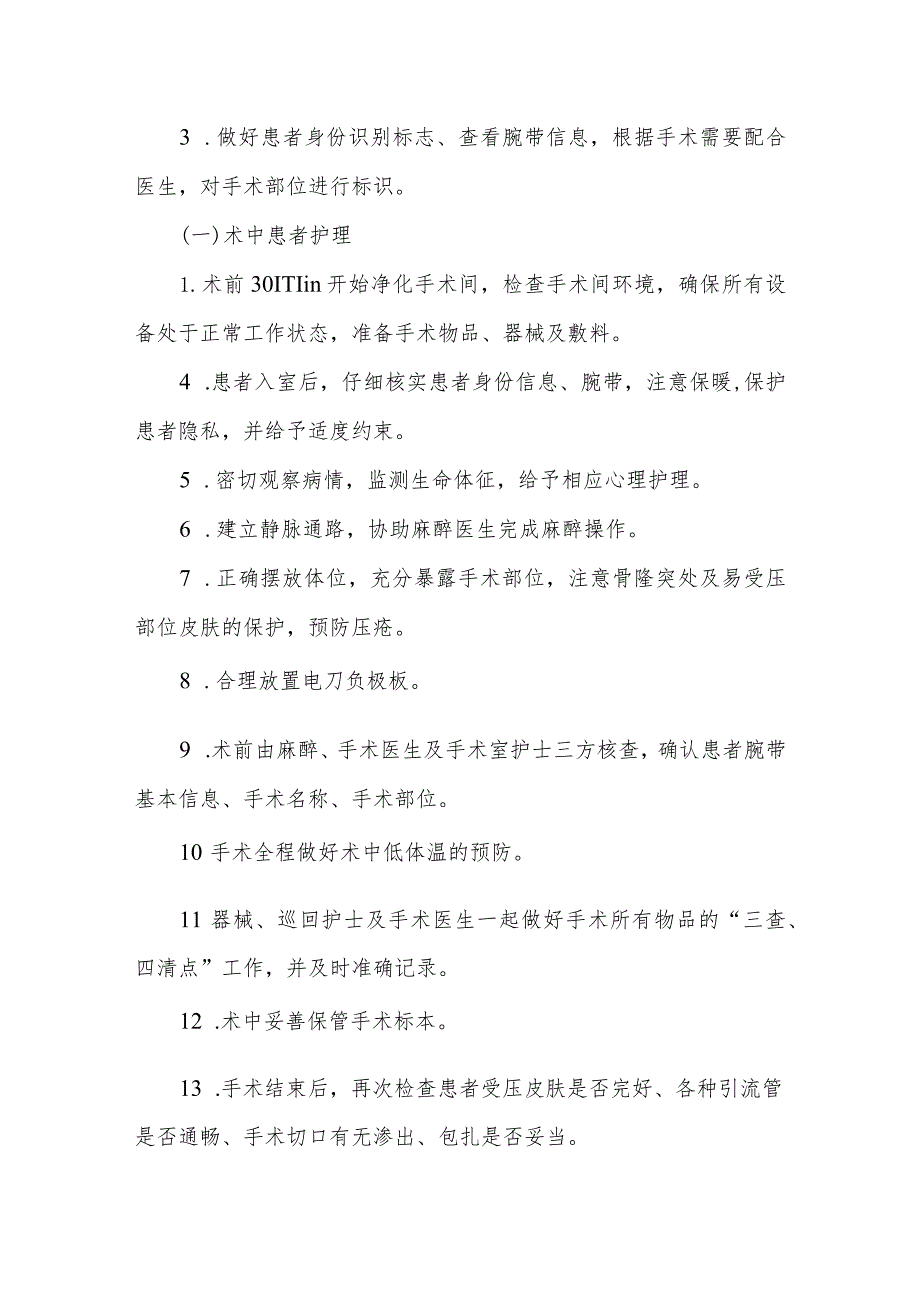 3 .做好患者身份识别标志、查看腕带信息，根据手术需要配合
医生，对手术部位进行标识。
(一)术中患者护理
1. 术前 30ITIin 开始净化手术间，检查手术间环境，确保所有设
备处于正常工作状态，准备手术物品、器械及敷料。
4 .患者入室后，仔细核实患者身份信息、腕带，注意保暖,保护
患者隐私，并给予适度约束。
5 .密切观察病情，监测生命体征，给予相应心理护理。
6 .建立静脉通路，协助麻醉医生完成麻醉操作。
7 .正确摆放体位，充分暴露手术部位，注意骨隆突处及易受压
部位皮肤的保护，预防压疮。
8 .合理放置电刀负极板。
9 .术前由麻醉、手术医生及手术室护士三方核查，确认患者腕带
基本信息、手术名称、手术部位。
10 手术全程做好术中低体温的预防。
11 器械、巡回护士及手术医生一起做好手术所有物品的“三查、
四清点”工作，并及时准确记录。
12 .术中妥善保管手术标本。
13 .手术结束后，再次检查患者受压皮肤是否完好、各种引流管
是否通畅、手术切口有无渗出、包扎是否妥当。